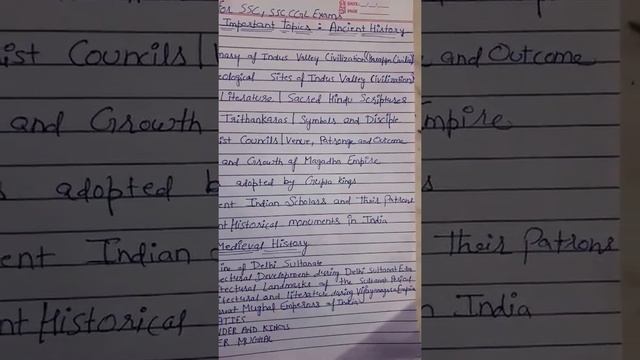 for SSC, SSC CGL Exams
Important Topics: Ancient History
mary of Indus Valley Civilization
eological Sites of Indus Valley Civilization
Literature | Sacred Hindu Scriptures
Tirthankaras | Symbols and Disciple
ist Councils | Venue, Patronge and Outcome
and Growth of Magadha Empire
adopted by Gupta kings
ent Indian Scholars and Their Patrons
nt Historical monuments in India
Medieval History
ine of Delhi Sultanate
tectural Development during Delhi Sultanat
tectural Landmarks of the Sultanat Period
itectural and literature during Vijaynagara Empire
Mughal Emperors of India
ATIES
NDER AND KINGS
ER MUGHAL
ist Councils |
and Outcome
and Growth
mpire
adopted b
s
ent Indian
Their Patrons
nt Historical
n India